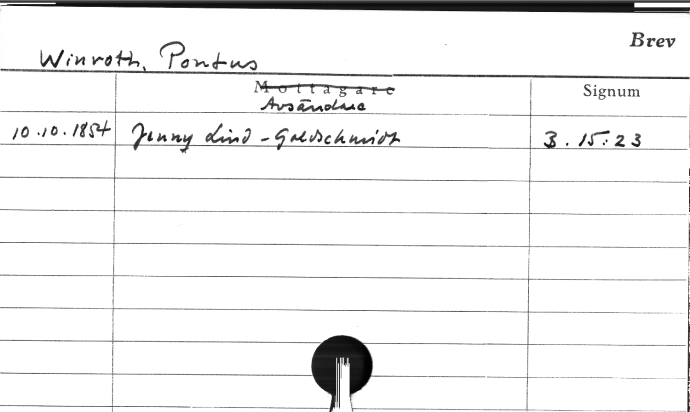 Brev
Winroth, Pontus
Mottagare Signum
Avsändare
10.10.1854 Jenny Lind-Goldschmidt B.15:23